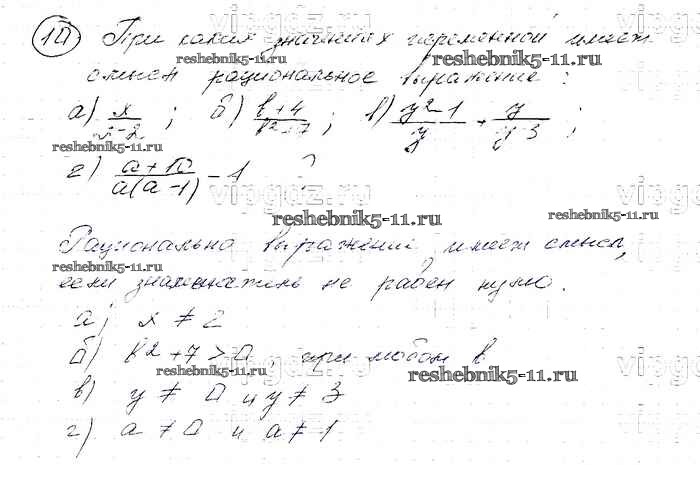 10 При каких значениях переменной имеет
смысл рациональное выражение:
а) x/x-2; б) b+4/b²+7; в) y²-1/y + y/y-3;
г) a+10/a(a-1) - 1 ?
Рационально выражение, имеет смысл,
если знаменатель не равен нулю.
а) x ≠ 2
б) b²+7>0, при любом b
в) y ≠ 0 и y ≠ 3
г) a ≠ 0 и a ≠ 1
vipgdz.ru
reshebnik5-11.ru
reshebnik5-11.ru
reshebnik5-11.ru
reshebnik5-11.ru
reshebnik5-11.ru
reshebnik5-11.ru
reshebnik5-11.ru
reshebnik5-11.ru